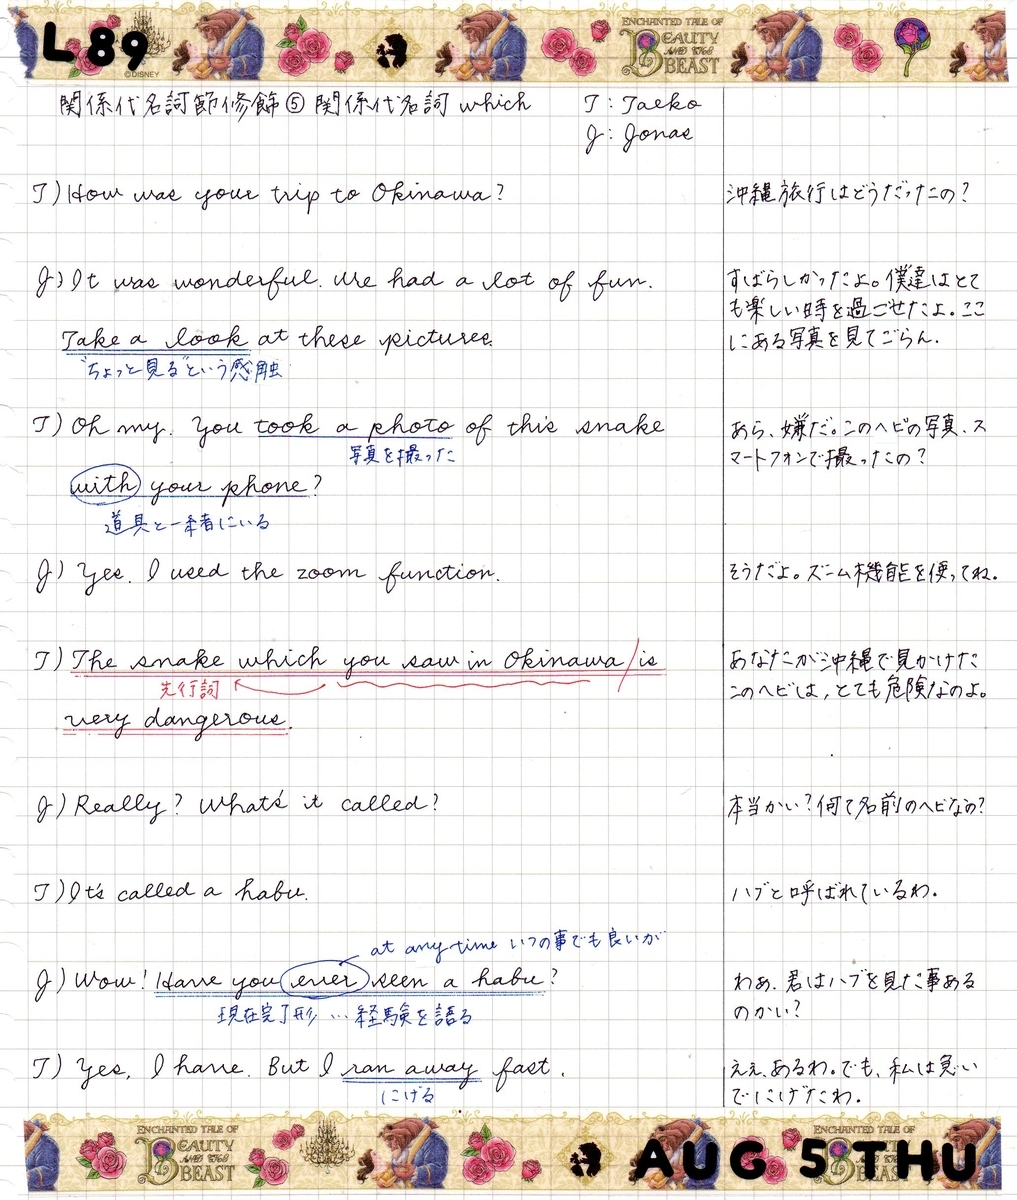 L89
©DISNEY
ENCHANTED TALE OF
BEAUTY
AND THE
BEAST
関係代名詞節修飾⑤ 関係代名詞 which
T: Taeko
J: Jonas
T) How was your trip to Okinawa?
沖縄旅行はどうだったの?
J) It was wonderful. We had a lot of fun.
Take a look at these pictures.
"ちょっと見る"という感触
すばらしかったよ。僕達はとて
も楽しい時を過ごせたよ。ここ
にある写真を見てごらん.
T) Oh my. You took a photo of this snake
写真を撮った
with your phone?
道具と一緒にいる
あら、嫌だ。このヘビの写真、ス
マートフォンで撮ったの?
J) Yes. I used the zoom function.
そうだよ。ズーム機能を使ってね。
T) The snake which you saw in Okinawa / is
先行詞
very dangerous.
あなたが沖縄で見かけた
このヘビは, とても危険なのよ。
J) Really? What's it called?
本当かい?何て名前のヘビなの?
T) It's called a habu.
ハブと呼ばれているわ.
at any time いつの事でも良いが
J) Wow! Have you ever seen a habu?
現在完了形 … 経験を語る
わぁ、君はハブを見た事ある
のかい?
T) Yes, I have. But I ran away fast.
にげる
ええ、あるわ。でも、私は急い
でにげたわ.
ENCHANTED TALE OF
BEAUTY
AND THE
BEAST
AUG 5 THU